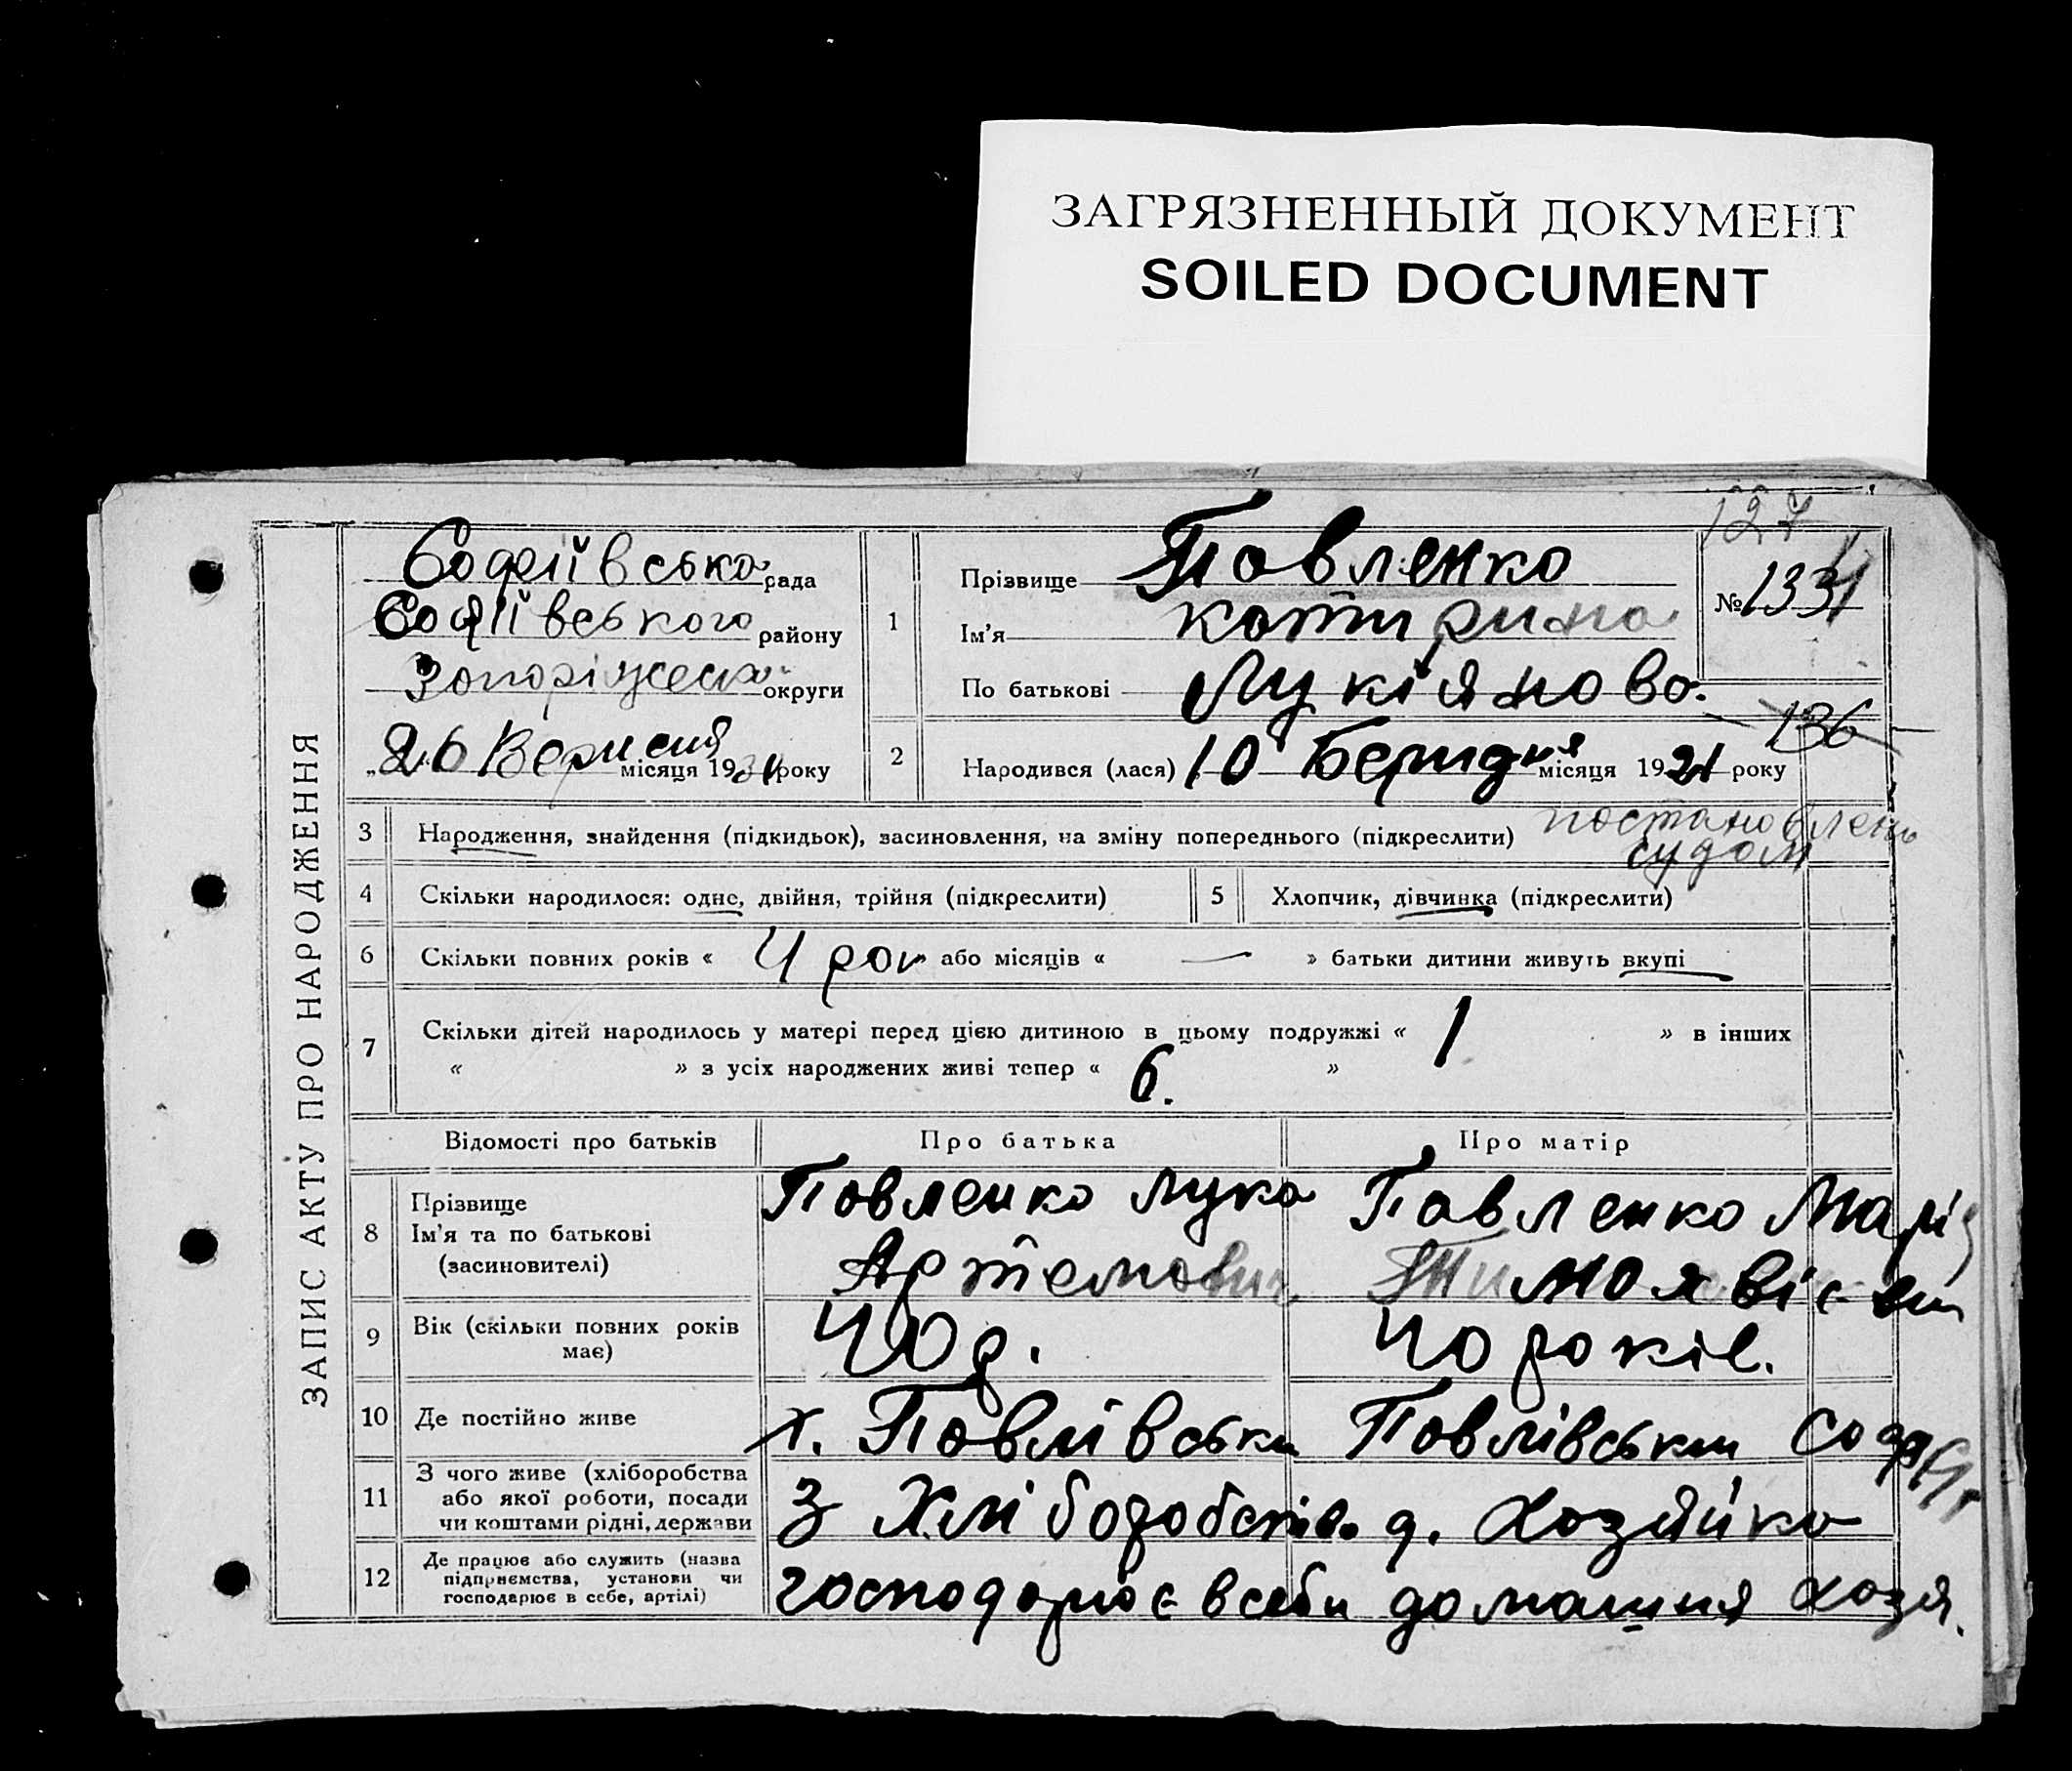 ЗАГРЯЗНЕННЫЙ ДОКУМЕНТ
SOILED DOCUMENT
127
ЗАПИС АКТУ ПРО НАРОДЖЕННЯ
Софіївська рада
Софіївського району
Запоріжськ округи
26 Вересня місяця 1931 року
1
Прізвище Павленко
Ім'я Катирина
По батькові Лукіянова
№ 1331
136
2
Народився (лася) 10 Беридня місяця 1921 року
3 Народження, знайдення (підкидьок), засиновлення, на зміну попереднього (підкреслити) постановлень
судом
4 Скільки народилося: одне, двійня, трійня (підкреслити) 5 Хлопчик, дівчинка (підкреслити)
6 Скільки повних років « 4 рок » або місяців « — » батьки дитини живуть вкупі
7 Скільки дітей народилось у матері перед цією дитиною в цьому подружжі « 1 » в інших
« » з усіх народжених живі тепер « 6. »
Відомості про батьків Про батька Про матір
8 Прізвище
Ім'я та по батькові
(засиновителі)
Павленко Лука
Артемович
Павленко Марія
9 Вік (скільки повних років
має)
40 р. 40 років.
10 Де постійно живе х. Павлівськи Павлівськи Соф
11 З чого живе (хліборобства
або якої роботи, посади
чи коштами рідні, держави
З Хліборобства д. Хозяйка
12 Де працює або служить (назва
підприємства, установи чи
господарює в себе, артілі)
господарює в себи домашня хозя.